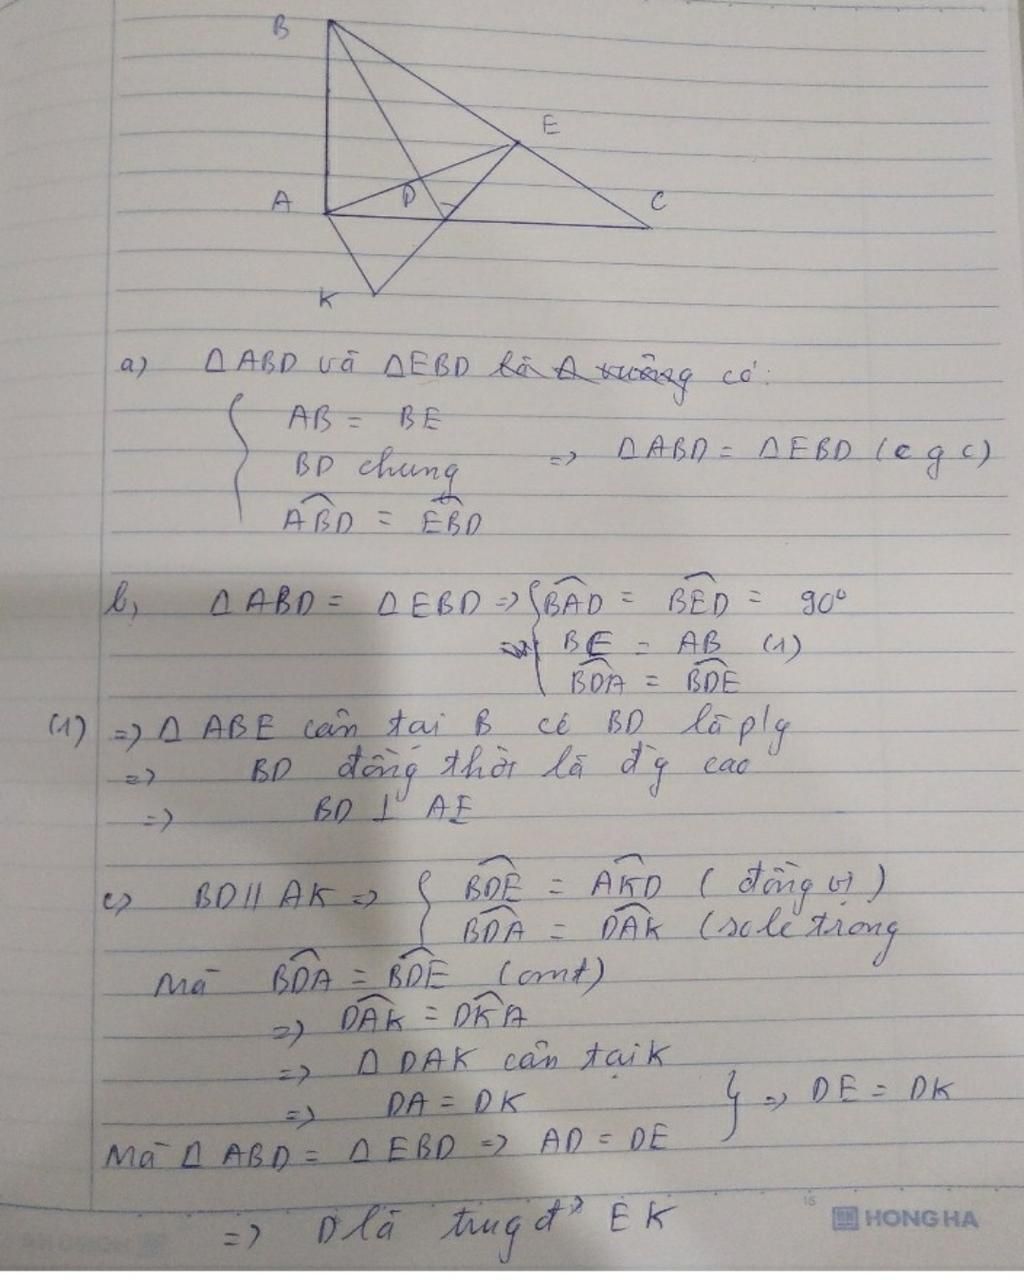 B
E
A
D
C
K
a) ΔABD và ΔEBD là Δ vuông có:
AB = BE
BD chung => ΔABD = ΔEBD (c g c)
\widehat{ABD} = \widehat{EBD}
b, ΔABD = ΔEBD => \widehat{BAD} = \widehat{BED} = 90°
=> BE = AB (1)
\widehat{BDA} = \widehat{BDE}
(1) => Δ ABE cân tai B có BD là p/g
=> BD đồng thời là đ'g cao
=> BD ⊥ AE
c) BD // AK => \widehat{BDE} = \widehat{AKD} (đồng vị)
\widehat{BDA} = \widehat{DAK} (so le trong
Mà \widehat{BDA} = \widehat{BDE} (cmt)
=> \widehat{DAK} = \widehat{DKA}
=> Δ DAK cân tại K
=> DA = DK } => DE = DK
Mà Δ ABD = Δ EBD => AD = DE
=> D là trug đ² EK
16
HONG HA